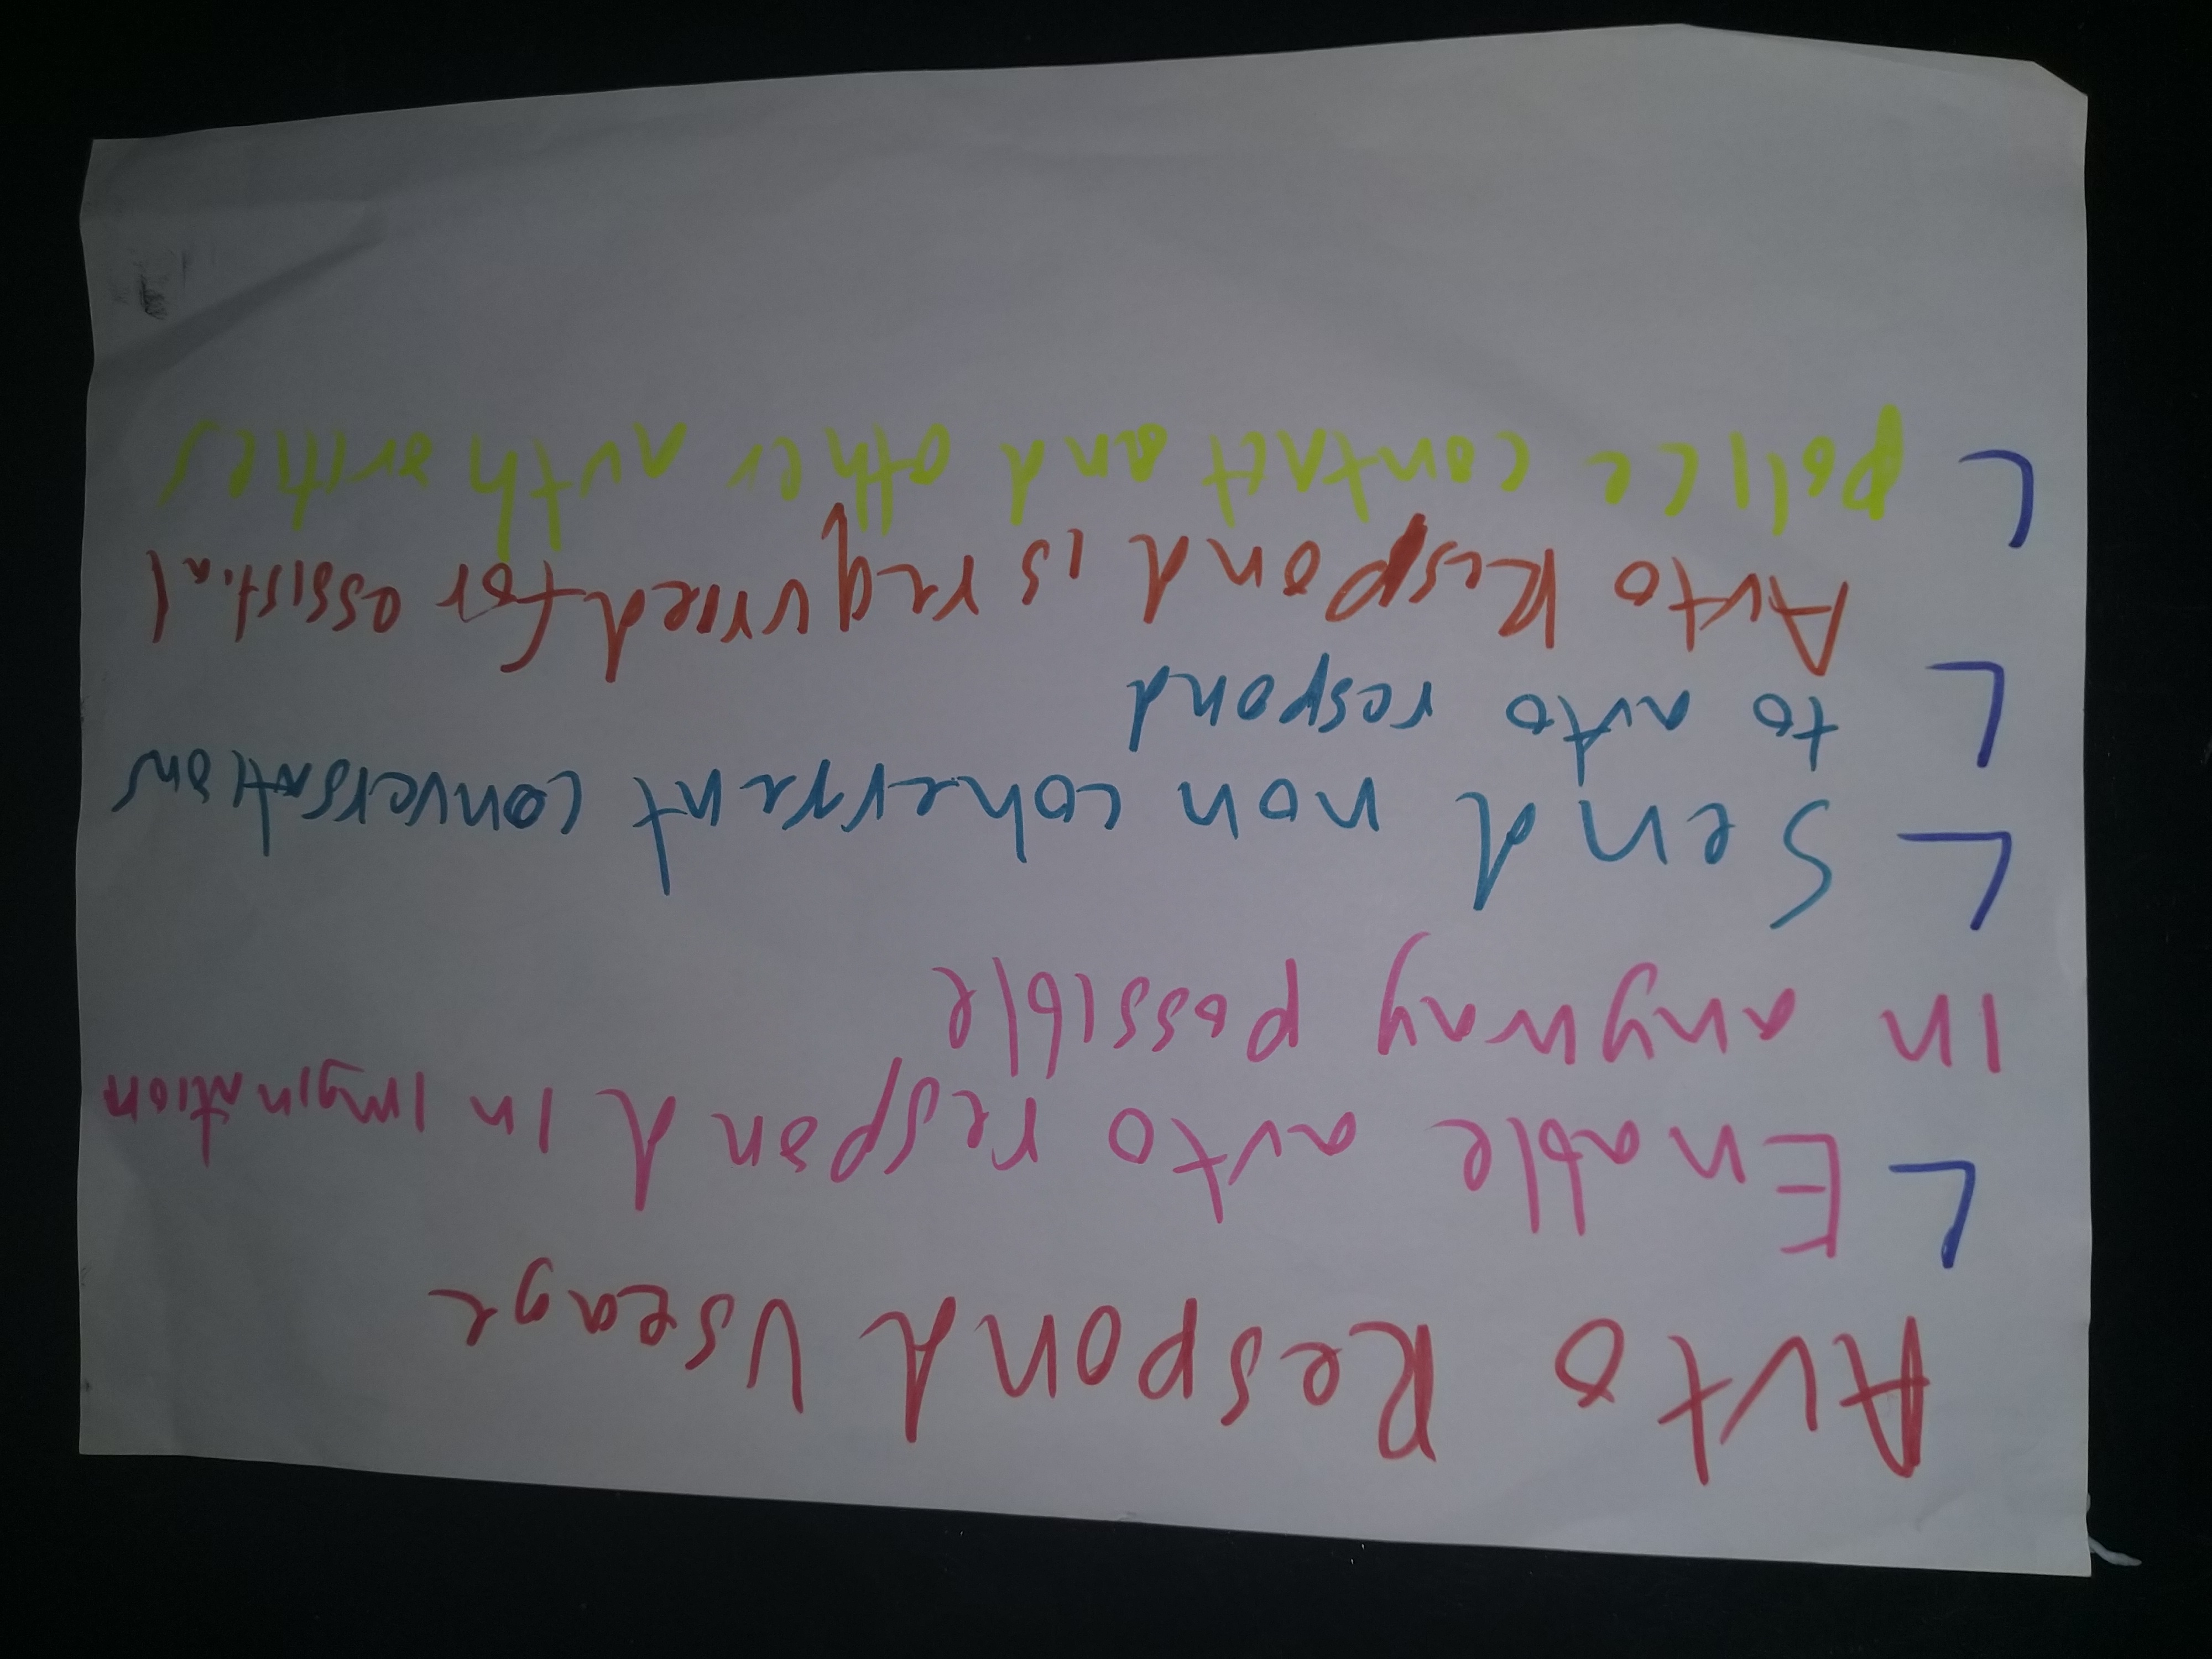 Auto Respond Useage
Enable auto respond in imgination
in anyway possible
Send non coherrent conversations
to auto respond
Auto Respond is required for
police contact and other authorites